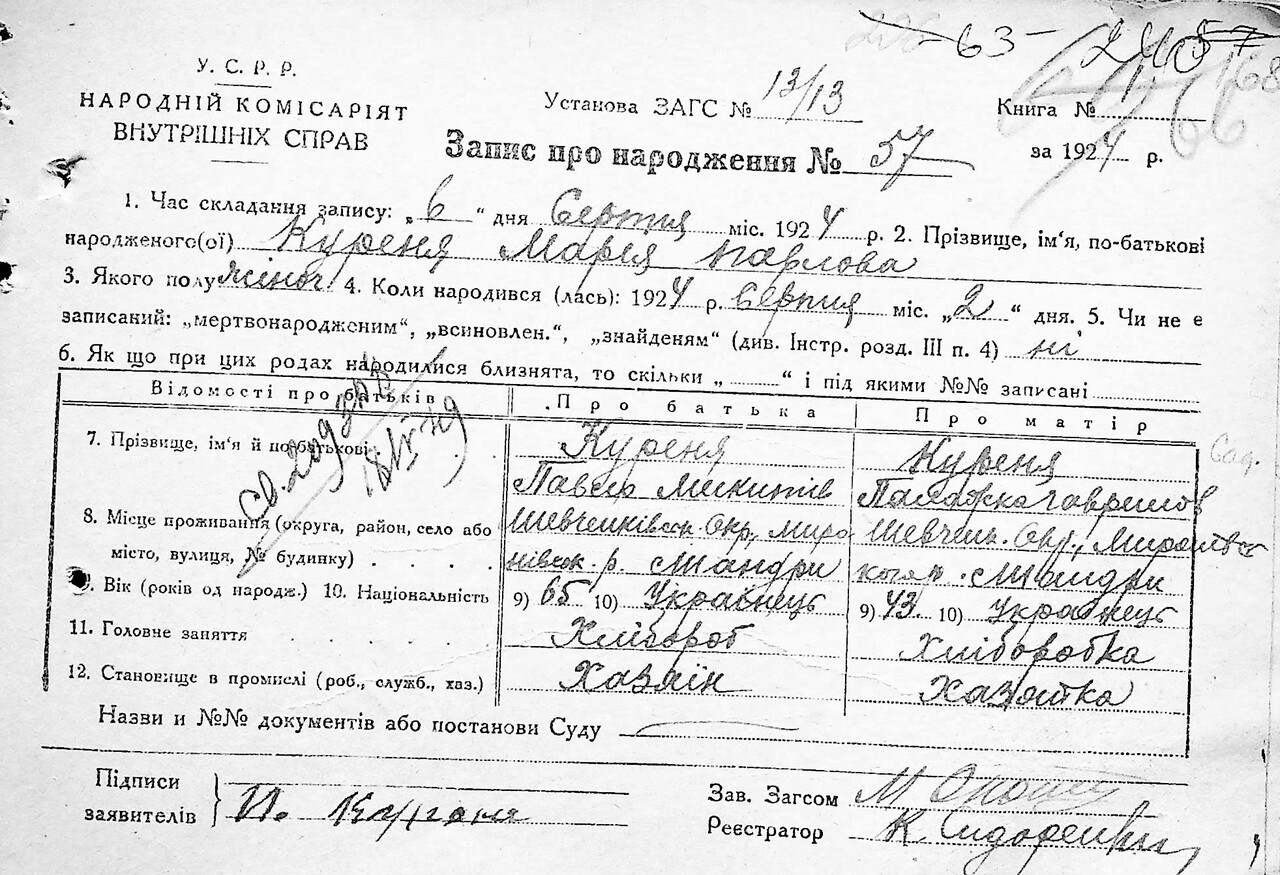 63 -
У. С. Р. Р.
НАРОДНІЙ КОМІСАРІЯТ
ВНУТРІШНІХ СПРАВ
Установа ЗАГС № 13/13
Книга №
Запис про народження № 57
за 1924 р.
1. Час складання запису: „6“ дня Серпня міс. 1924 р. 2. Прізвище, ім'я, по-батькові
народженого(ої) Куреня Марія Павлова
3. Якого полу жіноч 4. Коли народився (лась): 1924 р. Серпня міс. „2“ дня. 5. Чи не є
записаний: „мертвонародженим“, „всиновлен.“, „знайденям“ (див. Інстр. розд. III п. 4) ні
6. Як що при цих родах народилися близнята, то скільки „ “ і під якими №№ записані
Відомості про батьків Про батька Про матір
7. Прізвище, ім'я й по-батькові Куреня Куреня
Павло Микитів
8. Місце проживання (округа, район, село або Шевченківськ. Окр., Миро Шевченк. Окр.,
місто, вулиця, № будинку) нівськ. р.
9. Вік (років од народж.) 10. Національність 9) 65 10) Українець 9) 43 10) Українець
11. Головне заняття Хлібороб Хліборобка
12. Становище в промислі (роб., служб., хаз.) Хазяїн Хазяйка
Назви и №№ документів або постанови Суду
Підписи
заявителів П. Куреня
Зав. Загсом М
Реєстратор К. Сидоренко